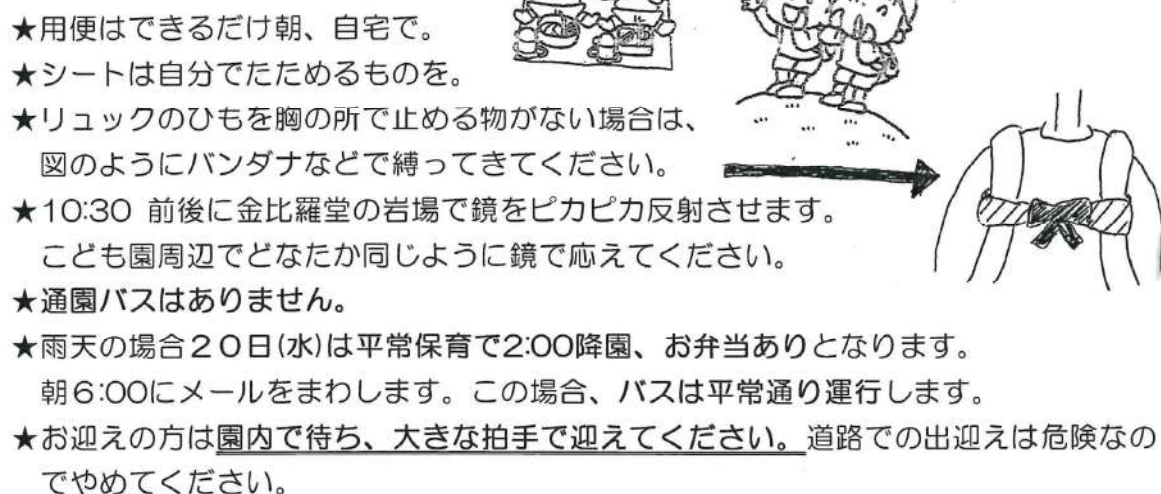 ★用便はできるだけ朝、自宅で。
★シートは自分でたためるものを。
★リュックのひもを胸の所で止める物がない場合は、
図のようにバンダナなどで縛ってきてください。
★10:30 前後に金比羅堂の岩場で鏡をピカピカ反射させます。
こども園周辺でどなたか同じように鏡で応えてください。
★通園バスはありません。
★雨天の場合20日(水)は平常保育で2:00降園、お弁当ありとなります。
朝6:00にメールをまわします。この場合、バスは平常通り運行します。
★お迎えの方は園内で待ち、大きな拍手で迎えてください。道路での出迎えは危険なの
でやめてください。